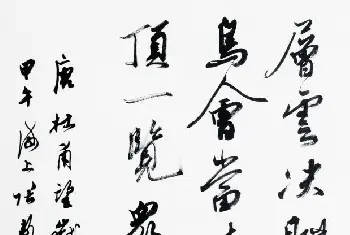 層雲决眥
鳥會當
頂一覽眾
唐杜甫望嶽
甲午海上